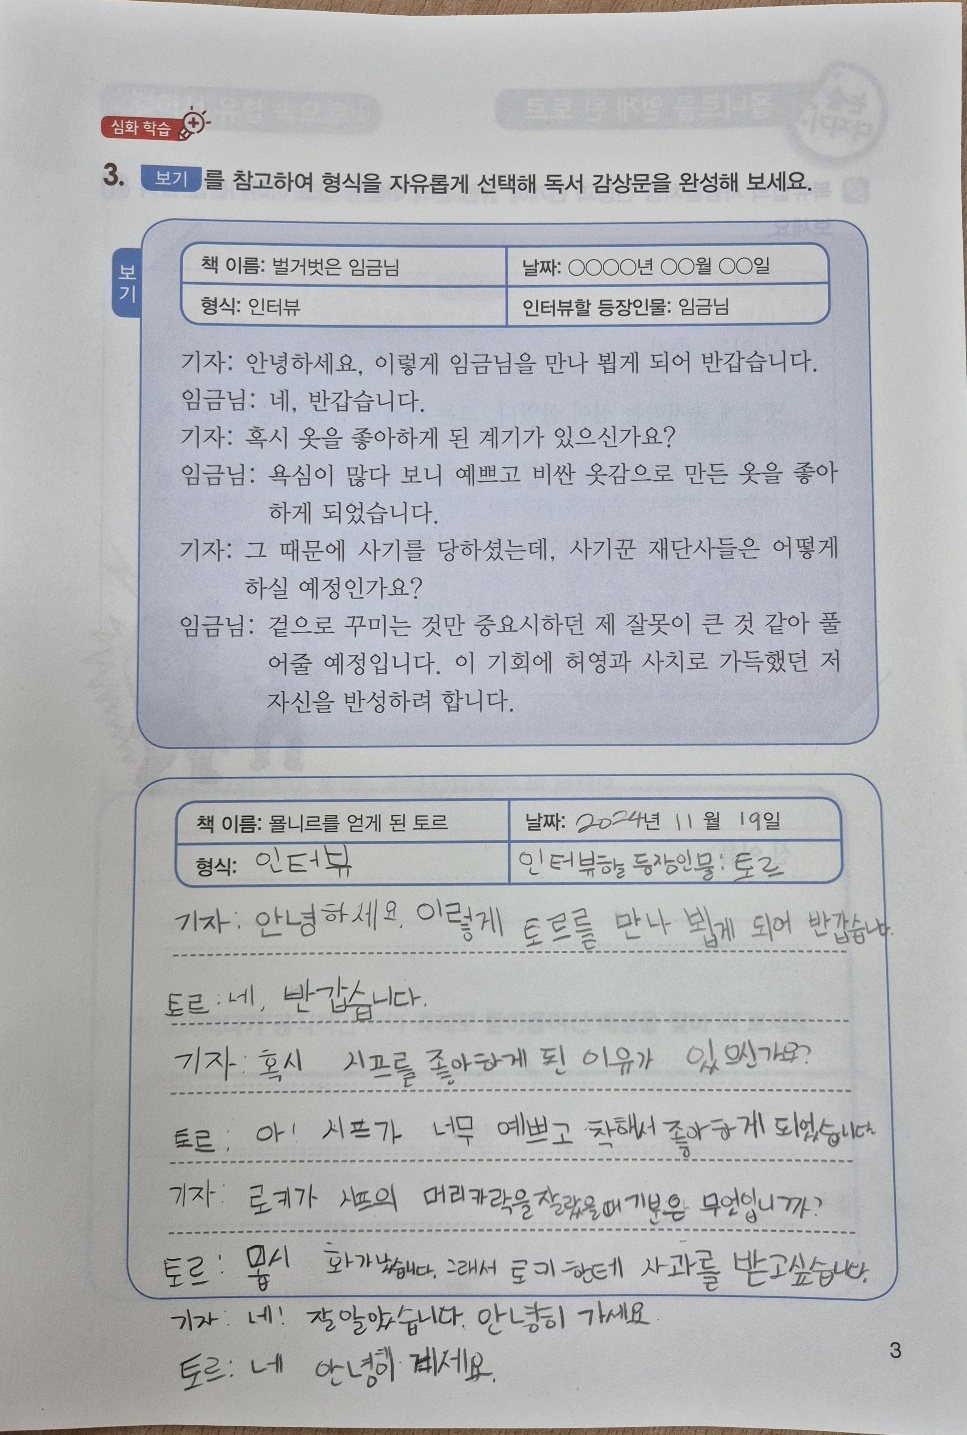 심화 학습
3. 보기 를 참고하여 형식을 자유롭게 선택해 독서 감상문을 완성해 보세요.
보기
책 이름: 벌거벗은 임금님
날짜: ○○○○년 ○○월 ○○일
형식: 인터뷰
인터뷰할 등장인물: 임금님
기자: 안녕하세요, 이렇게 임금님을 만나 뵙게 되어 반갑습니다.
임금님: 네, 반갑습니다.
기자: 혹시 옷을 좋아하게 된 계기가 있으신가요?
임금님: 욕심이 많다 보니 예쁘고 비싼 옷감으로 만든 옷을 좋아
하게 되었습니다.
기자: 그 때문에 사기를 당하셨는데, 사기꾼 재단사들은 어떻게
하실 예정인가요?
임금님: 겉으로 꾸미는 것만 중요시하던 제 잘못이 큰 것 같아 풀
어줄 예정입니다. 이 기회에 허영과 사치로 가득했던 저
자신을 반성하려 합니다.
책 이름: 묠니르를 얻게 된 토르
날짜: 2024년 11월 19일
형식: 인터뷰
인터뷰할 등장인물: 토르
기자: 안녕하세요. 이렇게 토르를 만나 뵙게 되어 반갑습니다.
토르: 네, 반갑습니다.
기자: 혹시 시프를 좋아하게 된 이유가 있으신가요?
토르: 아! 시프가 너무 예쁘고 착해서 좋아하게 되었습니다.
기자: 로키가 시프의 머리카락을 잘랐을 때 기분은 무엇입니까?
토르: 몹시 화가 났습니다. 그래서 로키한테 사과를 받고싶습니다.
기자: 네! 잘 알았습니다. 안녕히 가세요.
토르: 네 안녕히 계세요.
3